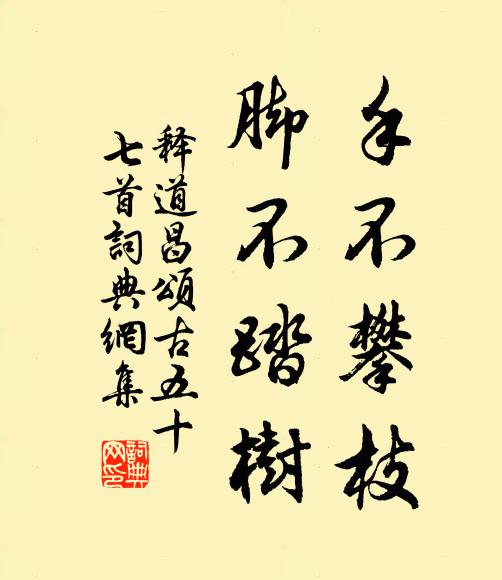 手不攀枝
脚不踏樹
释道昌頌古五十
七首詞典網集
詞典网印